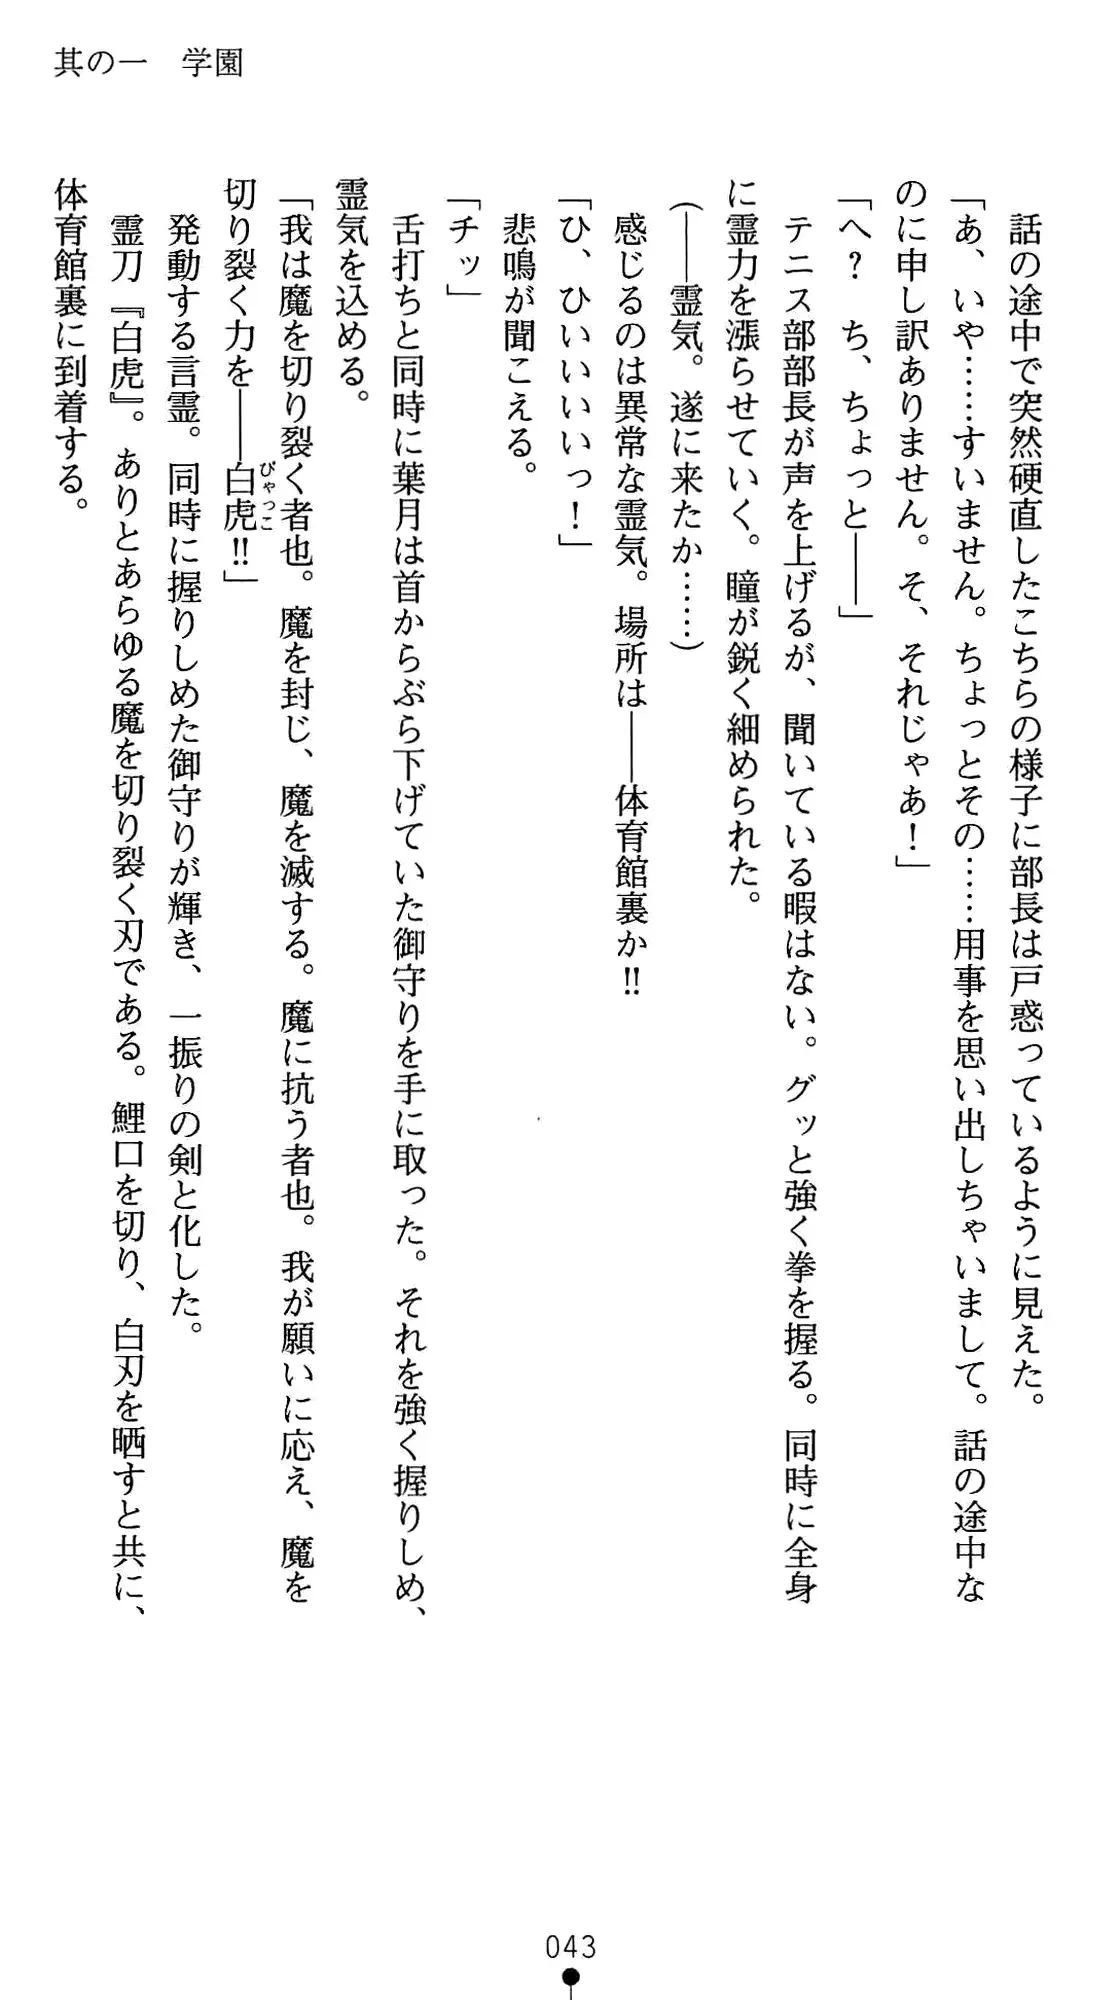 其の一　学園
　話の途中で突然硬直したこちらの様子に部長は戸惑っているように見えた。
「あ、いや……すいません。ちょっとその……用事を思い出しちゃいまして。話の途中な
のに申し訳ありません。そ、それじゃあ！」
「へ？　ち、ちょっと――」
　テニス部部長が声を上げるが、聞いている暇はない。グッと強く拳を握る。同時に全身
に霊力を漲らせていく。瞳が鋭く細められた。
（――霊気。遂に来たか……）
　感じるのは異常な霊気。場所は――体育館裏か‼
「ひ、ひいいいいっ！」
　悲鳴が聞こえる。
「チッ」
　舌打ちと同時に葉月は首からぶら下げていた御守りを手に取った。それを強く握りしめ、
霊気を込める。
「我は魔を切り裂く者也。魔を封じ、魔を滅する。魔に抗う者也。我が願いに応え、魔を
切り裂く力を――白虎‼」
びゃっこ
　発動する言霊。同時に握りしめた御守りが輝き、一振りの剣と化した。
　霊刀『白虎』。ありとあらゆる魔を切り裂く刃である。鯉口を切り、白刃を晒すと共に、
体育館裏に到着する。
043